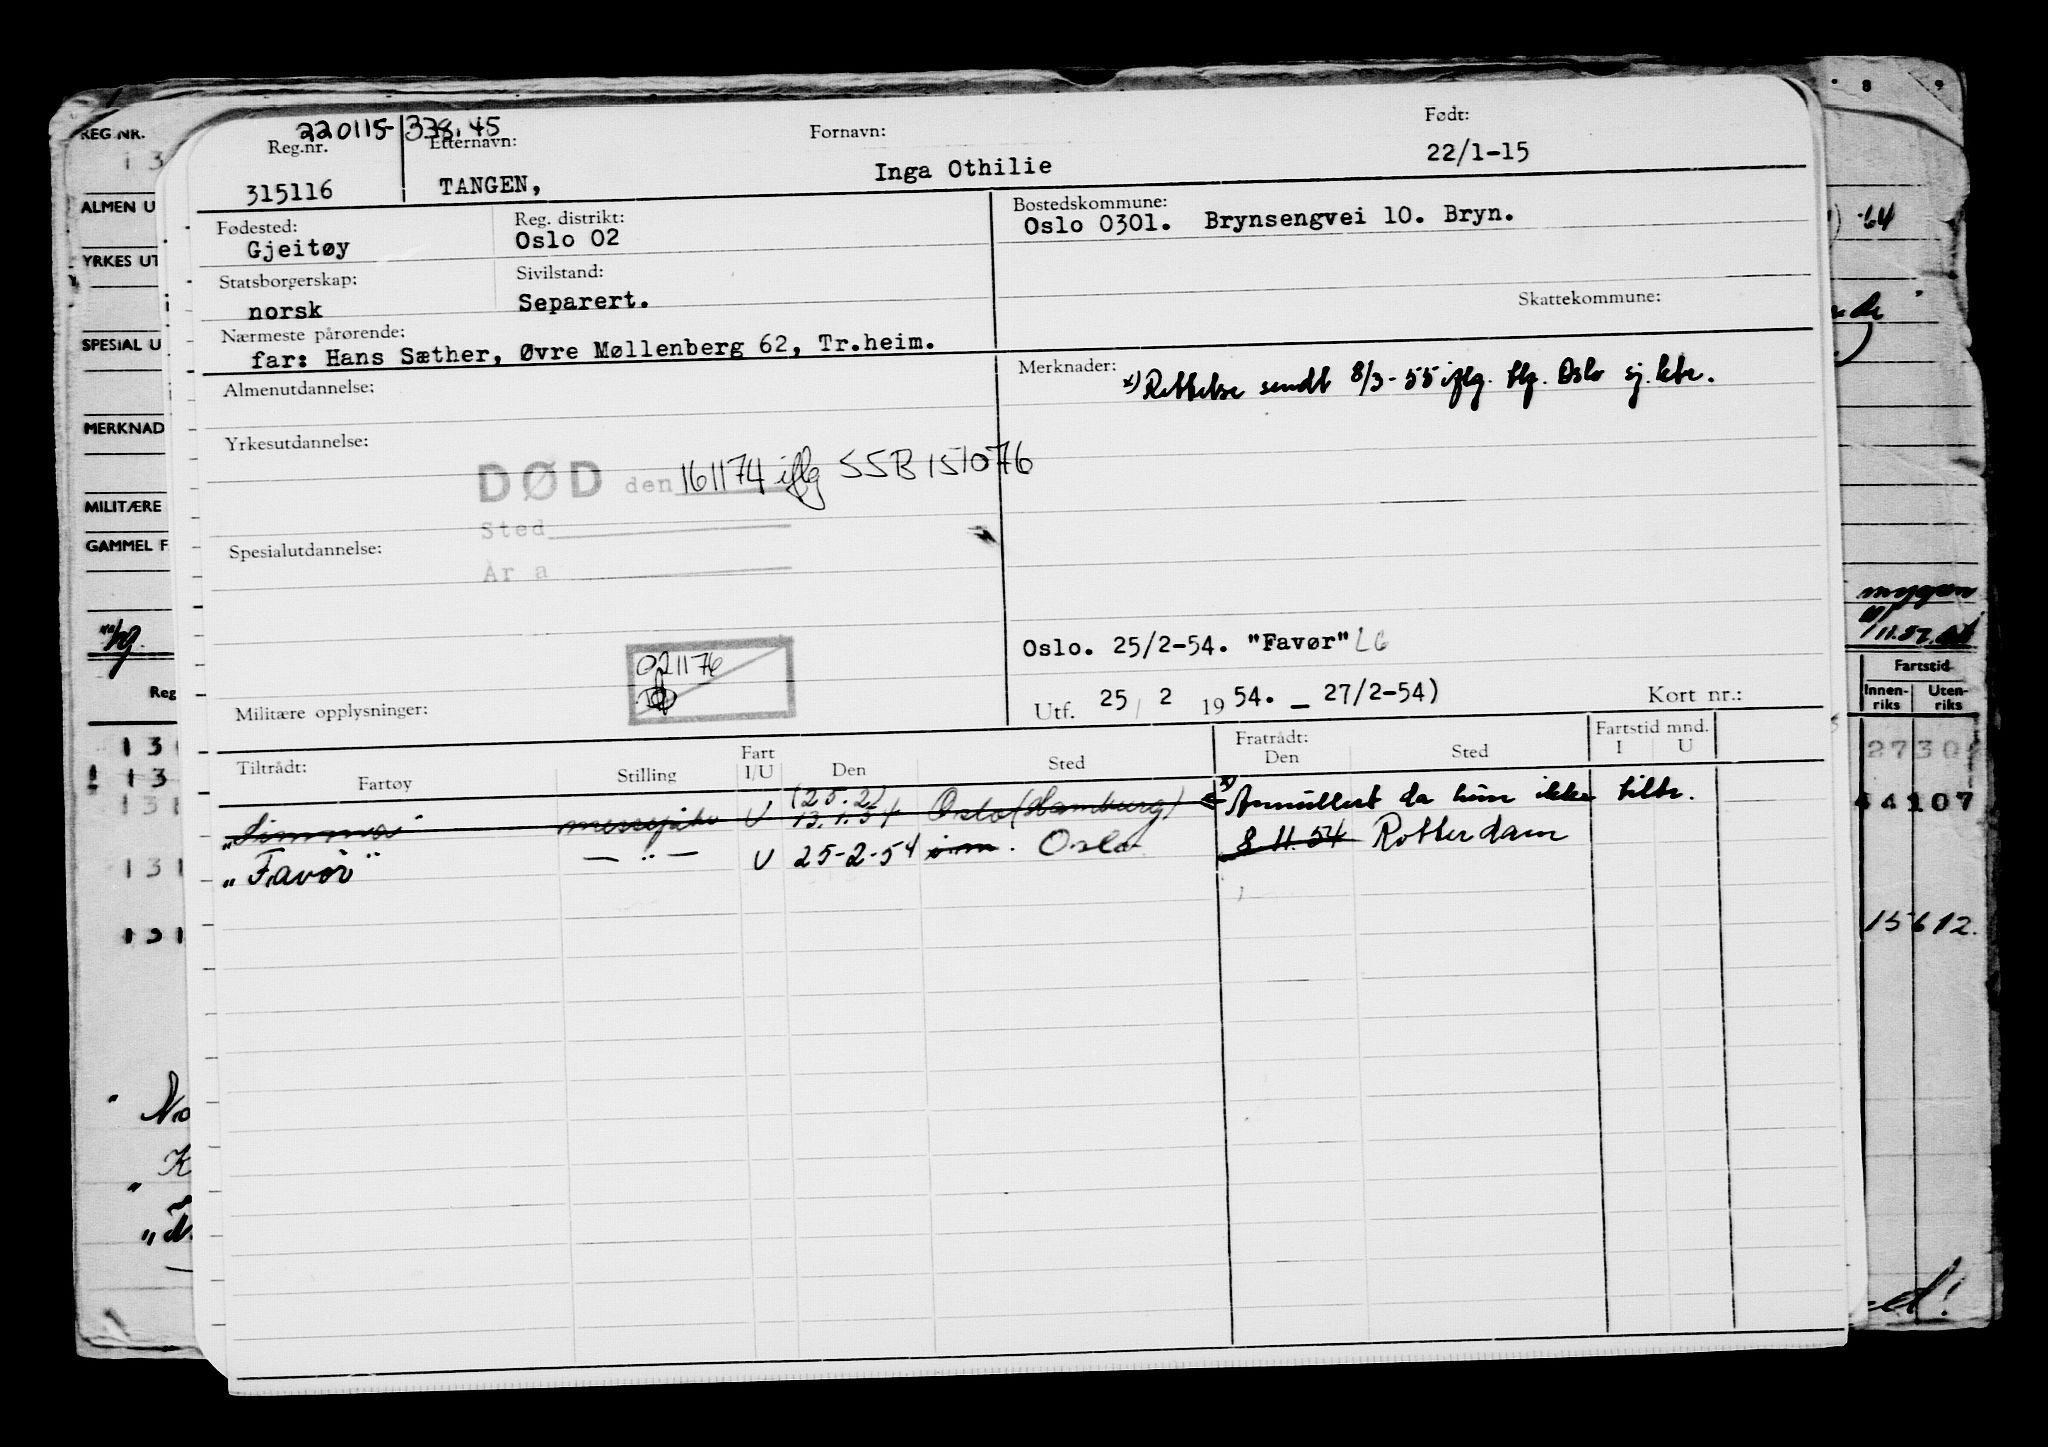 220115-338.45
Reg.nr. Etternavn: Fornavn: Født:
315116 TANGEN, Inga Othilie 22/1-15
Fødested: Reg. distrikt: Bostedskommune:
Gjeitøy Oslo 02 Oslo 0301. Brynsengvei 10. Bryn.
Statsborgerskap: Sivilstand:
norsk Separert. Skattekommune:
Nærmeste pårørende:
far: Hans Sæther, Øvre Møllenberg 62, Tr.heim.
Almenutdannelse: Merknader: x) Rettelse sendt 8/3-55 iflg. Oslo sj.ktr.
Yrkesutdannelse:
DØD den 161174 iflg SSB 151076
Sted
År a
Spesialutdannelse:
Oslo. 25/2-54. "Favør" LG
021176
Militære opplysninger: Utf. 25 / 2 19 54. _ 27/2-54) Kort nr.:
Tiltrådt: Fart Fratrådt: Fartstid mnd.
Fartøy Stilling I/U Den Sted Den Sted I U
(25.2)
"Simma" U 13.1.54 Oslo (Hamburg) x) Annullert da hun ikke tiltr.
"Favør" — " — U 25-2-54 Oslo 8.11.54 Rotterdam
REG NR.
ALMEN U
YRKES UT
SPESIAL U
MERKNAD
MILITÆRE
GAMMEL F
Reg
131
8 9
-64
11.57
Fartstid
Innen- Uten-
riks riks
27307
44107
15612.